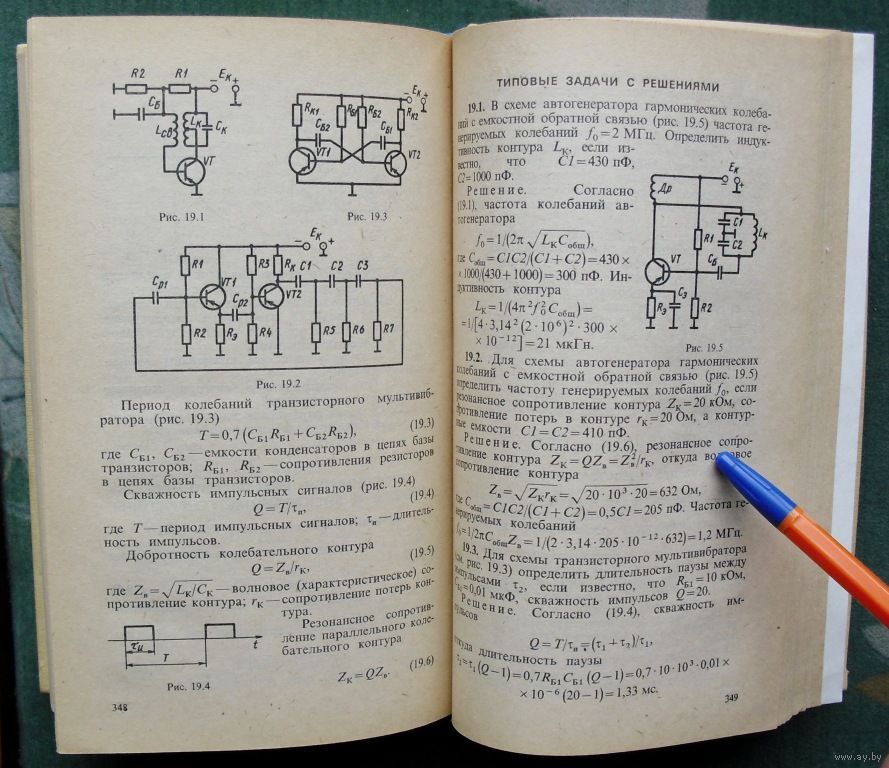 R2 R1 − Eк +
Cб
Lсв Lк Cк
VT
Рис. 19.1
Eк
Rк1 Rб1 Rб2 Rк2
Cб2 Cб1
VT1 VT2
Рис. 19.3
− Eк +
R1 VT1 R3 Rк C1 C2 C3
Cр1 Cр2 VT2
R2 Rэ R4 R5 R6 R7
Рис. 19.2
Период колебаний транзисторного мультивиб-
ратора (рис. 19.3)
T=0,7 (CБ1RБ1+CБ2RБ2), (19.3)
где CБ1, CБ2—емкости конденсаторов в цепях базы
транзисторов; RБ1, RБ2—сопротивления резисторов
в цепях базы транзисторов.
Скважность импульсных сигналов (рис. 19.4)
Q=T/τи, (19.4)
где T—период импульсных сигналов; τи—длитель-
ность импульсов.
Добротность колебательного контура
Q=Zв/rК, (19.5)
где Zв=√LК/CК—волновое (характеристическое) со-
противление контура; rК—сопротивление потерь кон-
тура.
Резонансное сопротив-
ление параллельного коле-
бательного контура
ZК=QZв. (19.6)
τи T t
Рис. 19.4
348
ТИПОВЫЕ ЗАДАЧИ С РЕШЕНИЯМИ
19.1. В схеме автогенератора гармонических колеба-
ний с емкостной обратной связью (рис. 19.5) частота ге-
нерируемых колебаний f0=2 МГц. Определить индук-
тивность контура LК, если из-
вестно, что C1=430 пФ,
C2=1000 пФ.
Решение. Согласно
(19.1), частота колебаний ав-
тогенератора
f0=1/(2π √LКCобщ),
где Cобщ=C1C2/(C1+C2)=430×
×1000/(430+1000)=300 пФ. Ин-
дуктивность контура
LК=1/(4π²f0²Cобщ)=
=1/[4·3,14²(2·10⁶)²·300×
×10⁻¹²]=21 мкГн.
Eк
Др − +
C1
R1 Lк
VT C2
Cб
Rэ Cэ R2
Рис. 19.5
19.2. Для схемы автогенератора гармонических
колебаний с емкостной обратной связью (рис. 19.5)
определить частоту генерируемых колебаний f0, если
резонансное сопротивление контура ZК=20 кОм, со-
противление потерь в контуре rК=20 Ом, а контур-
ные емкости C1=C2=410 пФ.
Решение. Согласно (19.6), резонансное сопро-
тивление контура ZК=QZв=Zв²/rК, откуда волновое
сопротивление контура
Zв=√ZКrК=√20·10³·20=632 Ом,
где Cобщ=C1C2/(C1+C2)=0,5C1=205 пФ. Частота ге-
нерируемых колебаний
f0=1/2πCобщZв=1/(2·3,14·205·10⁻¹²·632)=1,2 МГц.
19.3. Для схемы транзисторного мультивибратора
(см. рис. 19.3) определить длительность паузы между
импульсами τ2, если известно, что RБ1=10 кОм,
CБ1=0,01 мкФ, скважность импульсов Q=20.
Решение. Согласно (19.4), скважность им-
пульсов
Q=T/τи=(τ1+τ2)/τ1,
откуда длительность паузы
τ2=τ1(Q−1)=0,7RБ1CБ1(Q−1)=0,7·10·10³·0,01×
×10⁻⁶(20−1)=1,33 мс.
349
www.ay.by